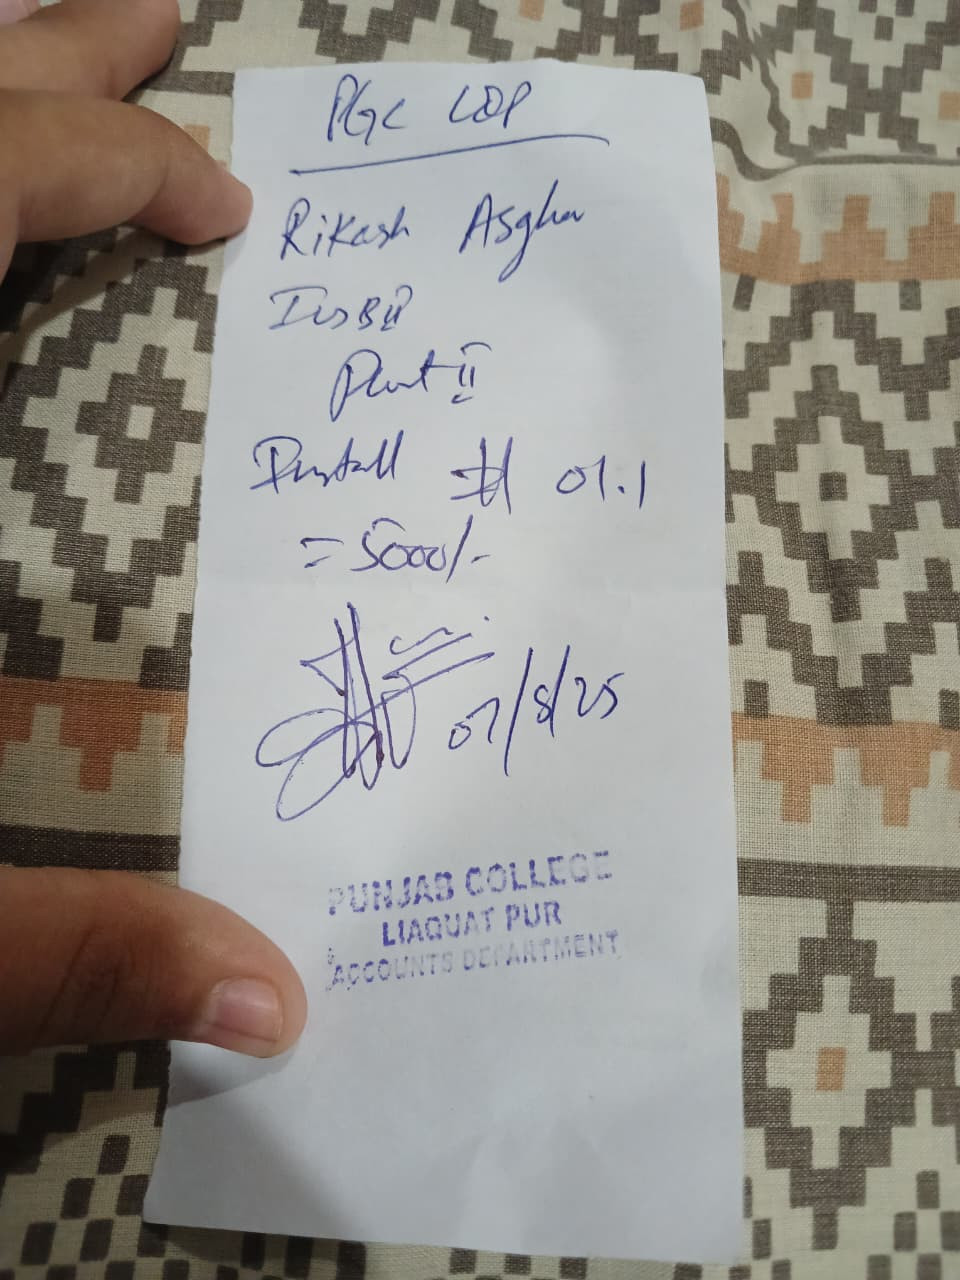 PGC LQP
Rikash Asghar
Part II
Install # 01.1
= 5000/-
07/8/25
PUNJAB COLLEGE
LIAQUAT PUR
ACCOUNTS DEPARTMENT